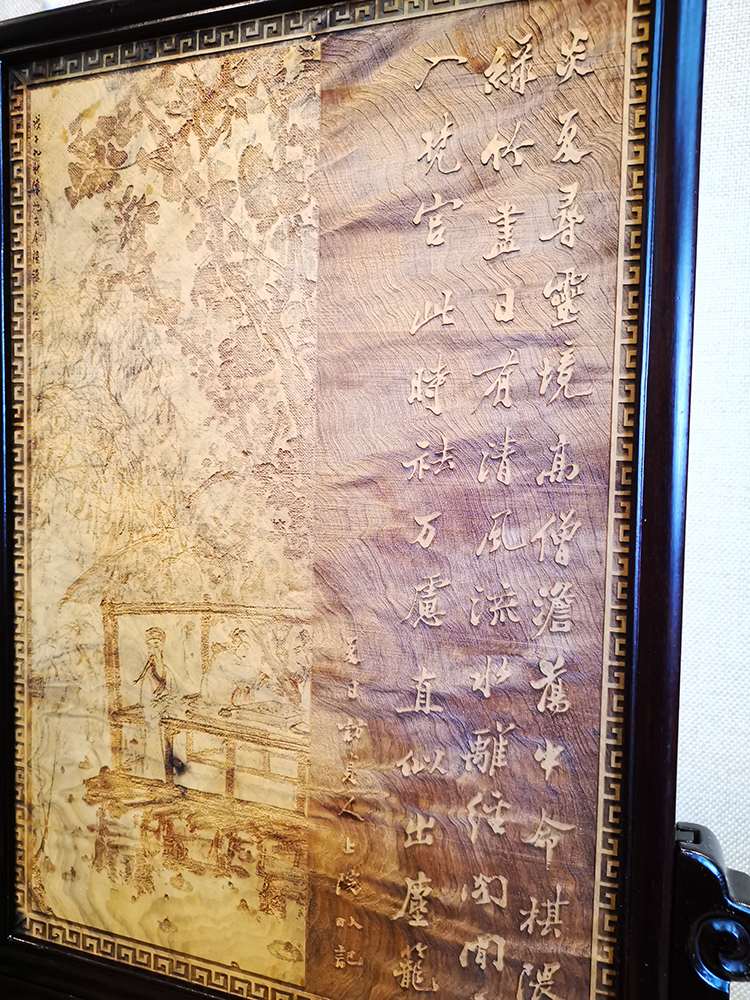 炎夏尋靈境高僧澹蕩中命棋隈
綠竹盡日有清風流水離經閣閒
入梵宮此時祛万慮直似出塵籠
夏日訪友人上院以記